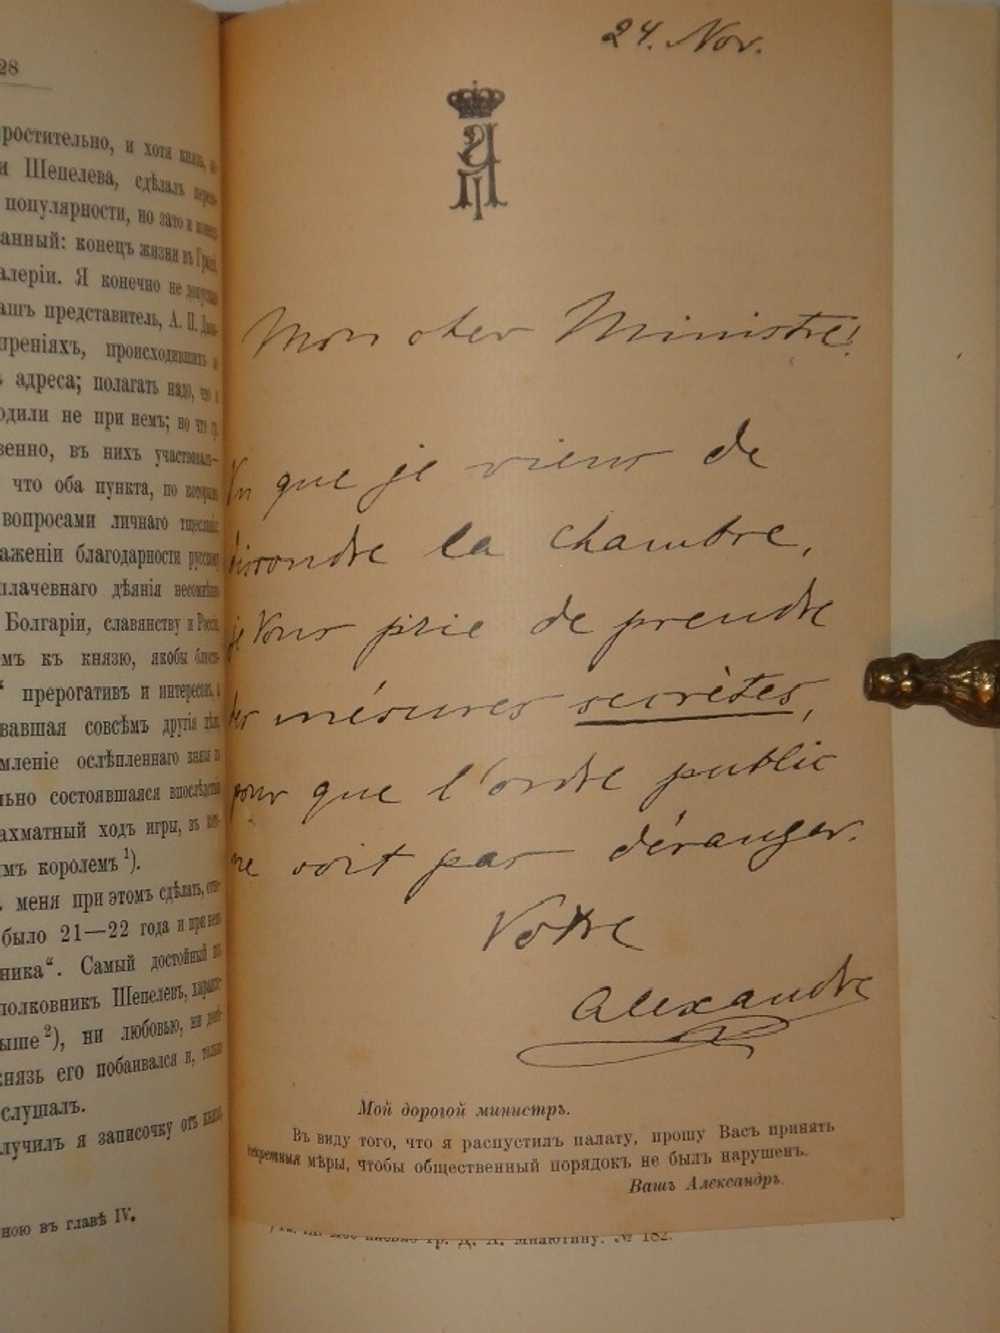 28
ростительно, и хотя князь,
и Шепелева, сдѣлалъ
популярности, но зато и
анный: конецъ жизни въ
алеріи. Я конечно не
ашъ представитель, А. П.
преніяхъ, происходившихъ
адреса; полагать надо, что
одили не при немъ; но что
венно, въ нихъ участвовал-
что оба пункта, по которымъ
вопросами личнаго тщеславія,
аженіи благодарности русскому
плачевнаго дѣянія
Болгаріи, славянству и Россіи,
мъ къ князю, якобы
“ прерогативъ и интересовъ,
вавшая совсѣмъ другія цѣли,
мленіе ослѣпленнаго князя
льно состоявшаяся впослѣдствіи
ахматный ходъ игры, въ
мъ королемъ ¹).
меня при этомъ сдѣлать,
было 21—22 года и при
ника“. Самый достойный
полковникъ Шепелевъ,
ыше ²), ни любовью, ни
князь его побаивался и, только
слушалъ.
лучилъ я записочку отъ
ною въ главѣ IV.
24. Nov.
А II
Mon cher Ministre!
Vu que je viens de
dissondre la chambre,
je Vous prie de prendre
des mésures secrètes,
pour que l'ordre public
ne soit pas déranger.
Votre
Alexandre
Мой дорогой министръ.
Въ виду того, что я распустилъ палату, прошу Васъ принять
секретныя мѣры, чтобы общественный порядокъ не былъ нарушенъ.
Вашъ Александръ.
мое письмо гр. Д. А. Милютину. № 182.